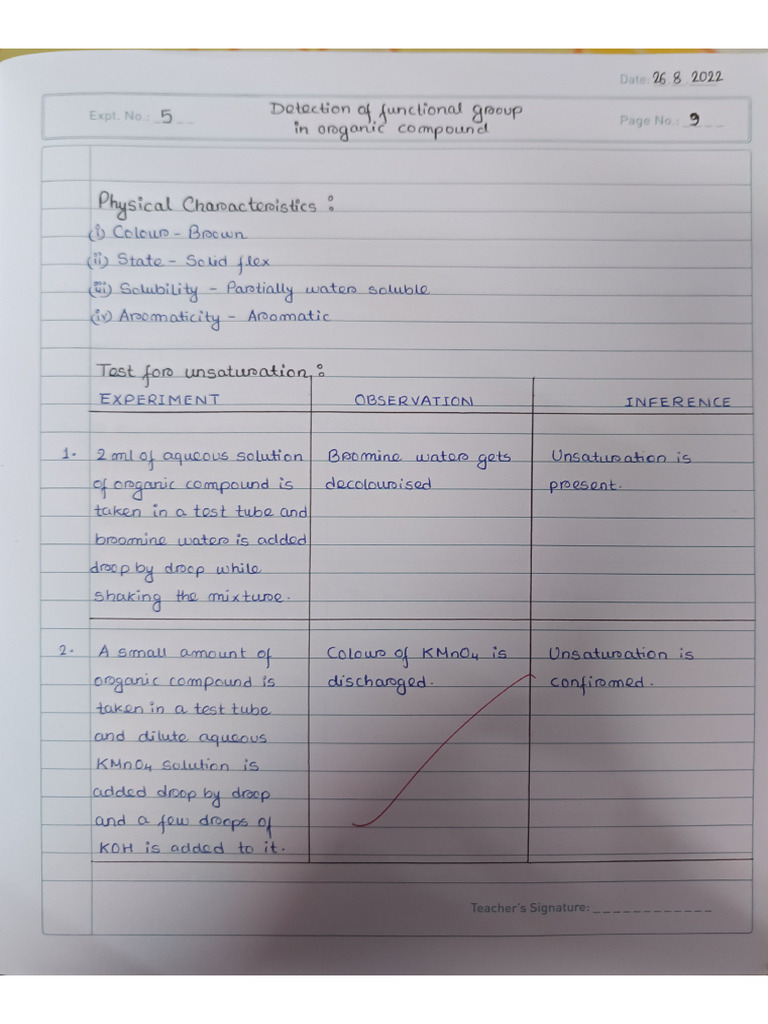 Date: 26 8 2022
Expt. No.: 5
Detection of functional group
in organic compound
Page No.: 9
Physical Characteristics :
(i) Colour - Brown
(ii) State - Solid flex
(iii) Solubility - Partially water soluble
(iv) Aromaticity - Aromatic
Test for unsaturation :
EXPERIMENT OBSERVATION INFERENCE
1. 2 ml of aqueous solution Bromine water gets Unsaturation is
of organic compound is decolourised present.
taken in a test tube and
bromine water is added
drop by drop while
shaking the mixture.
2. A small amount of Colour of KMnO4 is Unsaturation is
organic compound is discharged. confirmed.
taken in a test tube
and dilute aqueous
KMnO4 solution is
added drop by drop
and a few drops of
KOH is added to it.
Teacher's Signature: